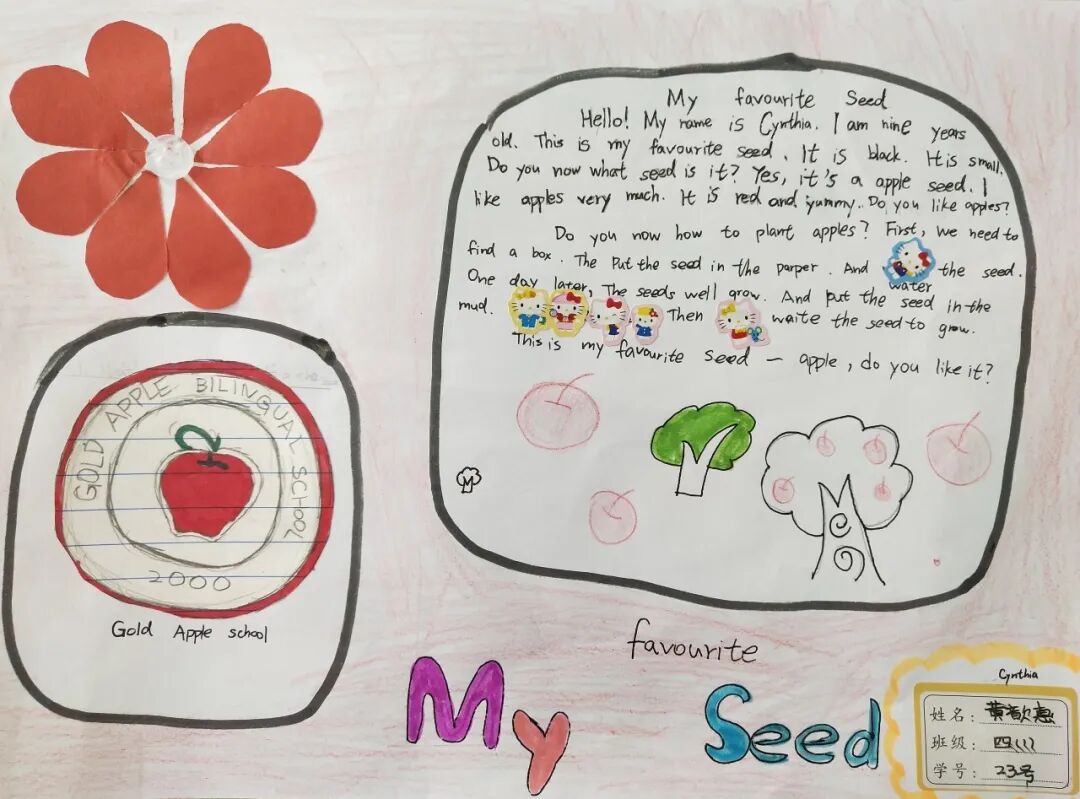 My favourite Seed
Hello! My name is Cynthia. I am nine years
old. This is my favourite seed. It is black. It is small.
Do you now what seed is it? Yes, it's a apple seed. I
like apples very much. It is red and yummy. Do you like apples?
Do you now how to plant apples? First, we need to
find a box. The Put the seed in the parper. And water the seed.
One day later, The seeds well grow. And put the seed in the
mud. Then waite the seed to grow.
This is my favourite seed — apple, do you like it?
GOLD APPLE BILINGUAL SCHOOL
2000
Gold Apple school
favourite
My Seed
Cynthia
姓名:黄歆惠
班级:四(1)
学号:23号